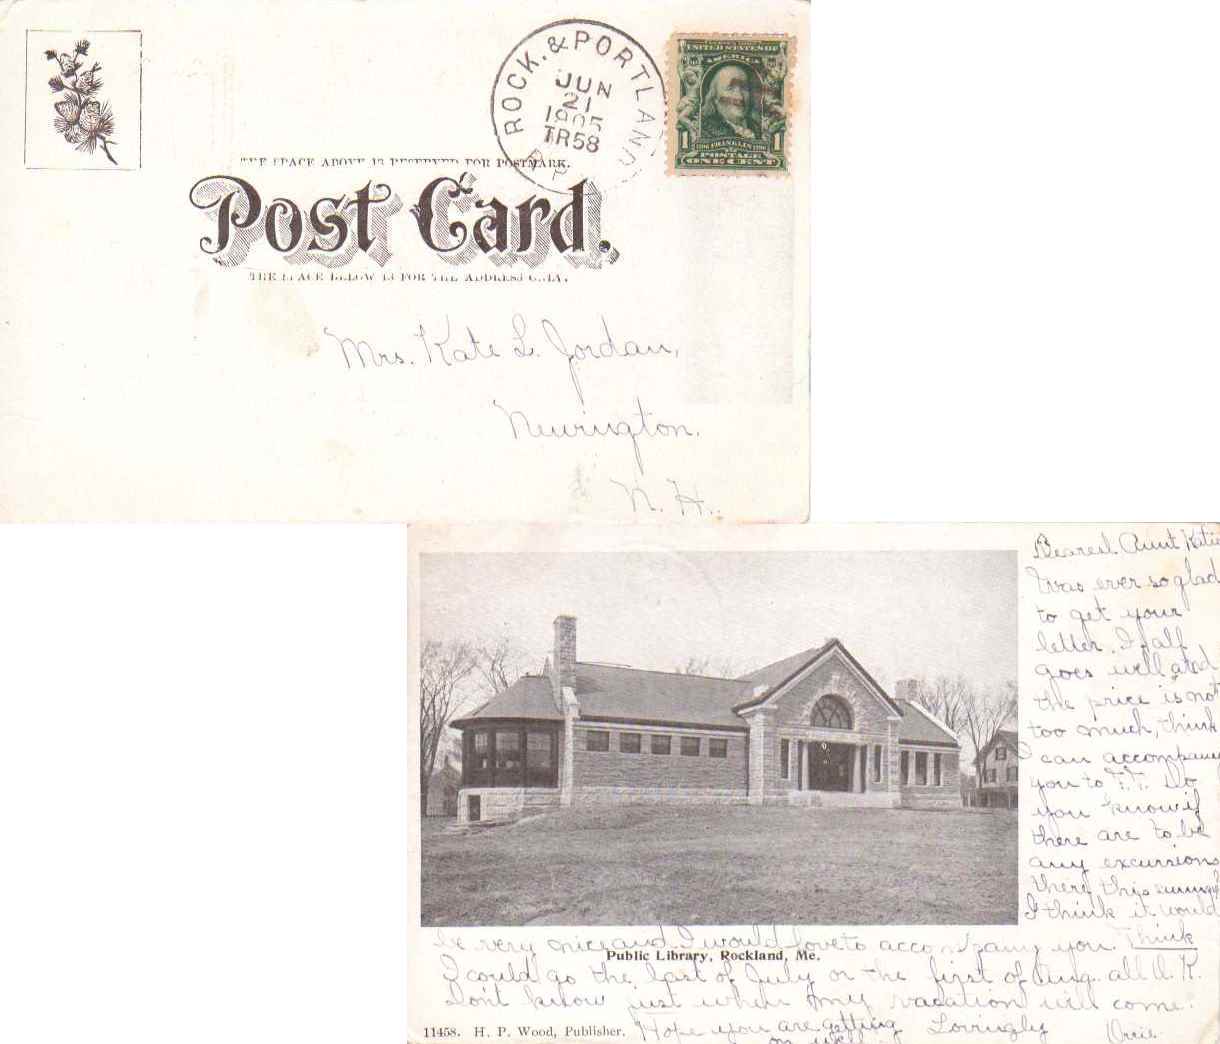 ROCK. & PORTLAND
JUN
21
1905
TR58
R.P.
UNITED STATES OF
AMERICA
1 FRANKLIN 1
POSTAGE
ONE CENT
THE SPACE ABOVE IS RESERVED FOR POSTMARK.
Post Card.
THE SPACE BELOW IS FOR THE ADDRESS ONLY.
Mrs. Kate L. Jordan,
Newington.
N. H.
Dearest Aunt Katie
I was ever so glad
to get your
letter. I
goes well and
the price is not
too much, think
I can accompany
you to F.F. Do
you know if
there are to be
any excursions
there this summer
I think it would
be very nice and I would love to accompany you. Think
Public Library, Rockland, Me.
I could go the last of July or the first of Aug. all O.K.
Don't know just when my vacation will come.
11458. H. P. Wood, Publisher.
Hope you are getting Lovingly
on well. Orrie